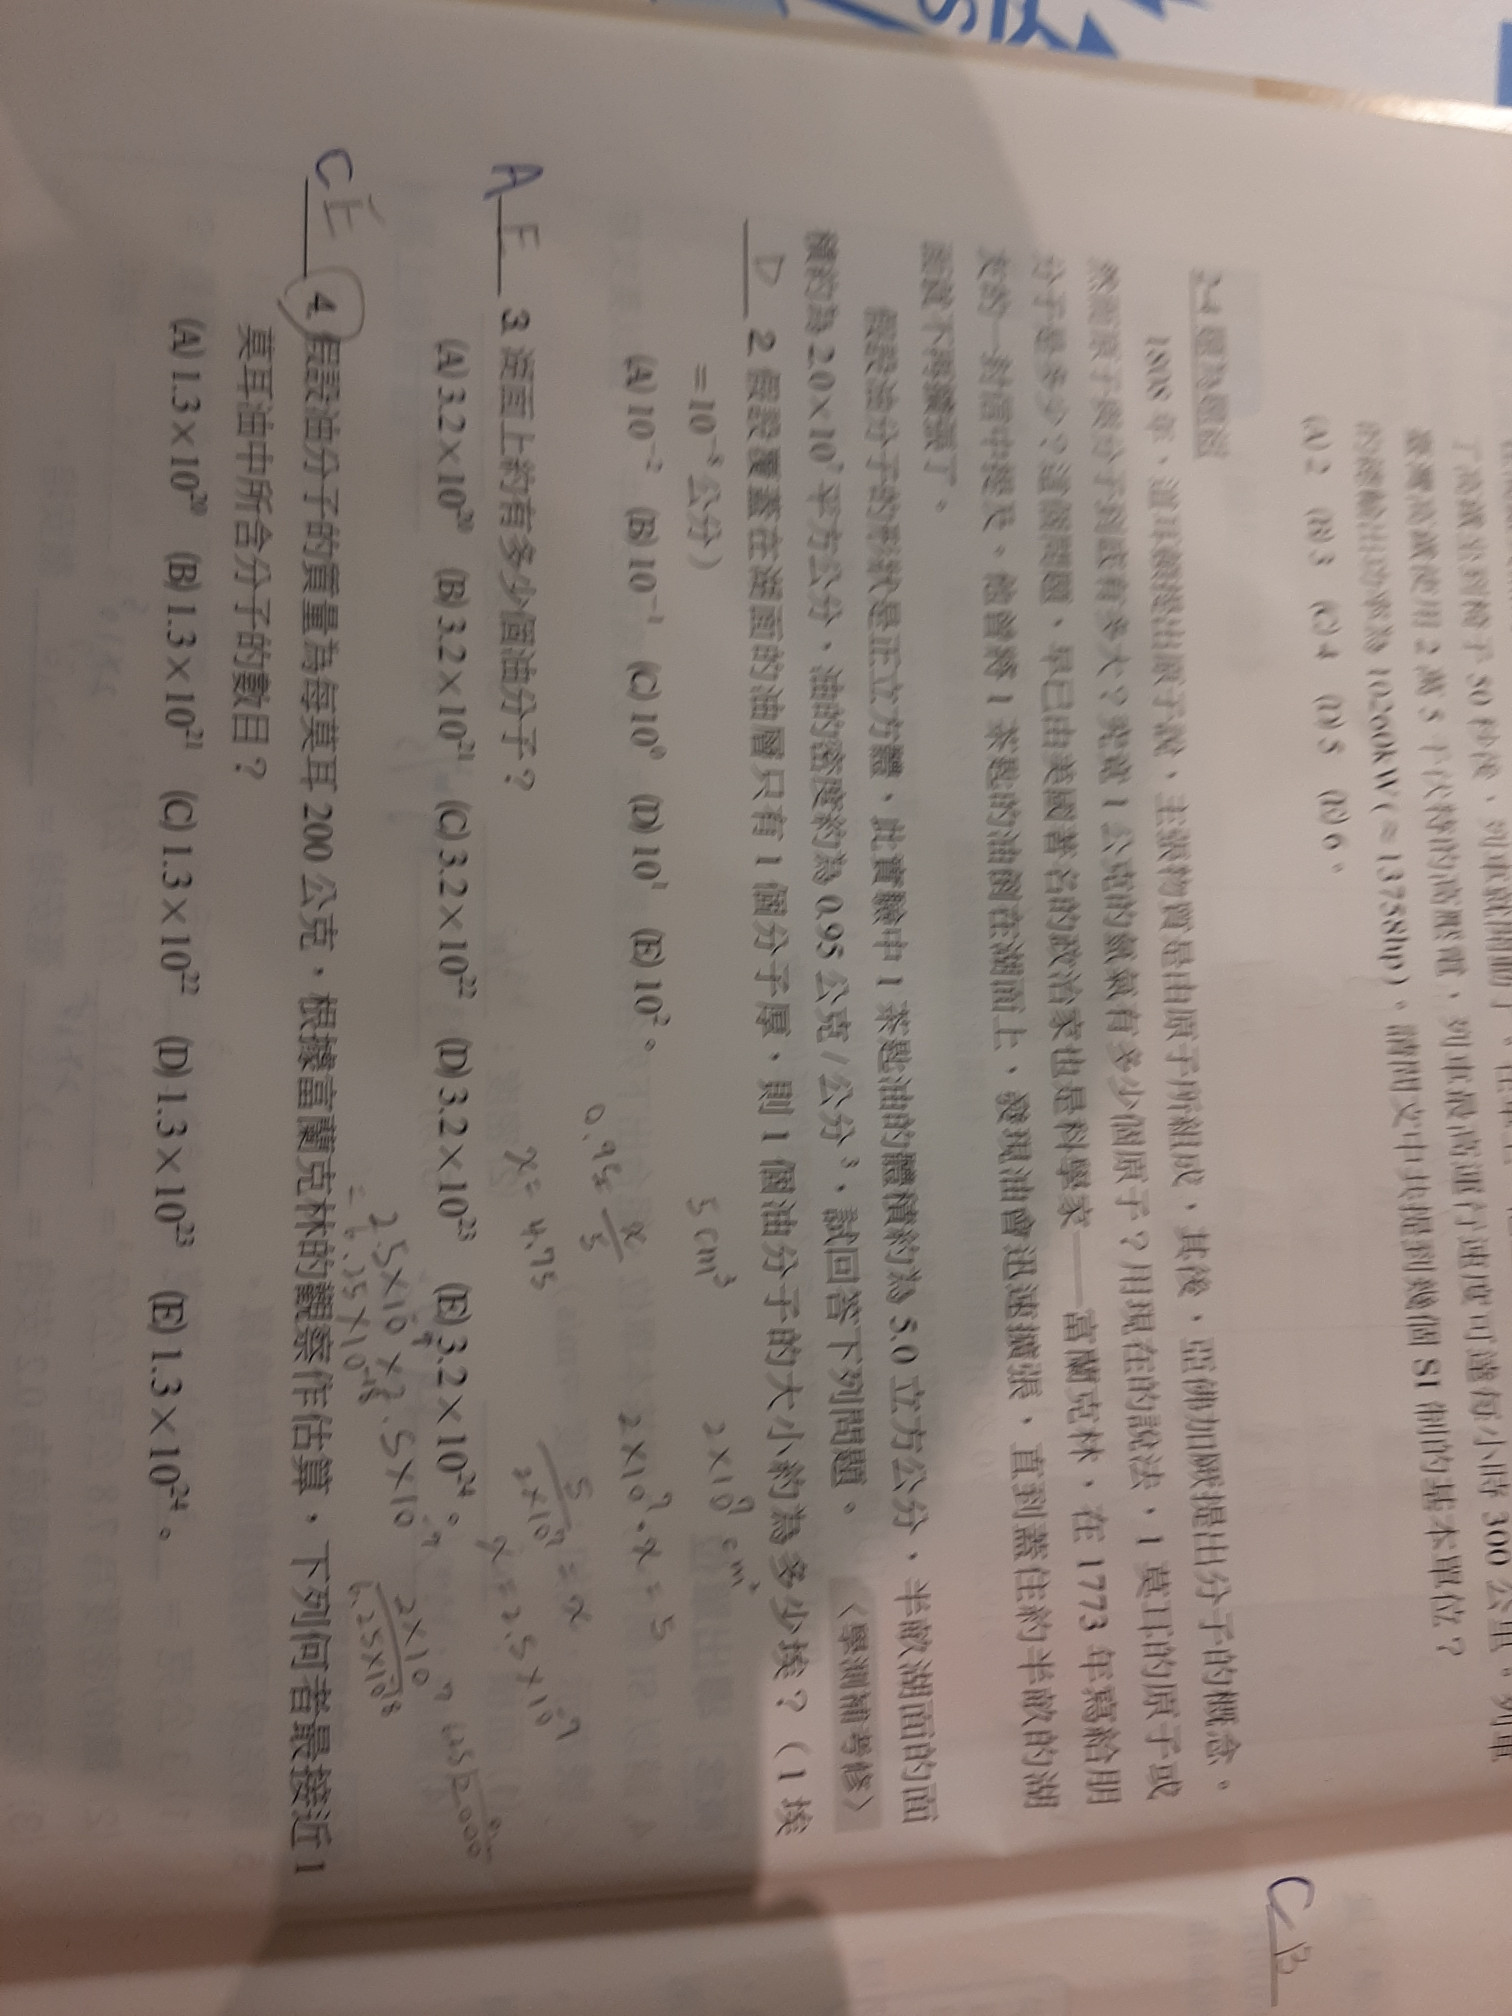 了浪漱坐到椅子 50 秒後，列車就開動了。
臺灣高鐵使用 2 萬 5 千伏特的高壓電，列車最高運行速度可達每小時 300 公里。列車
的總輸出功率為 10260kW（≈13758hp）。請問文中共提到幾個 SI 制的基本單位？
(A) 2 (B) 3 (C) 4 (D) 5 (E) 6。
C B
2-4 題為題組
1808 年，道耳頓提出原子說，主張物質是由原子所組成，其後，亞佛加厥提出分子的概念。
然而原子與分子到底有多大？究竟 1 公克的氫氣有多少個原子？用現在的說法，1 莫耳的原子或
分子是多少？這個問題，早已由美國著名的政治家也是科學家——富蘭克林，在 1773 年寫給朋
友的一封信中提及。他曾將 1 茶匙的油倒在湖面上，發現油會迅速擴張，直到蓋住約半畝的湖
面就不再擴張了。
假設油分子的形狀是正立方體，此實驗中 1 茶匙油的體積約為 5.0 立方公分，半畝湖面的面
積約為 2.0×10⁷ 平方公分，油的密度約為 0.95 公克/公分³，試回答下列問題。
〈學測補考修〉
D 2. 假設覆蓋在湖面的油層只有 1 個分子厚，則 1 個油分子的大小約為多少埃？（1 埃
=10⁻⁸ 公分）
5 cm³
(A) 10⁻² (B) 10⁻¹ (C) 10⁰ (D) 10¹ (E) 10²。
0.95 = x/5
x = 4.75
A E 3. 湖面上約有多少個油分子？
(A) 3.2×10²⁰ (B) 3.2×10²¹ (C) 3.2×10²² (D) 3.2×10²³ (E) 3.2×10²⁴。
C E 4. 假設油分子的質量為每莫耳 200 公克，根據富蘭克林的觀察作估算，下列何者最接近 1
莫耳油中所含分子的數目？
(A) 1.3×10²⁰ (B) 1.3×10²¹ (C) 1.3×10²² (D) 1.3×10²³ (E) 1.3×10²⁴。